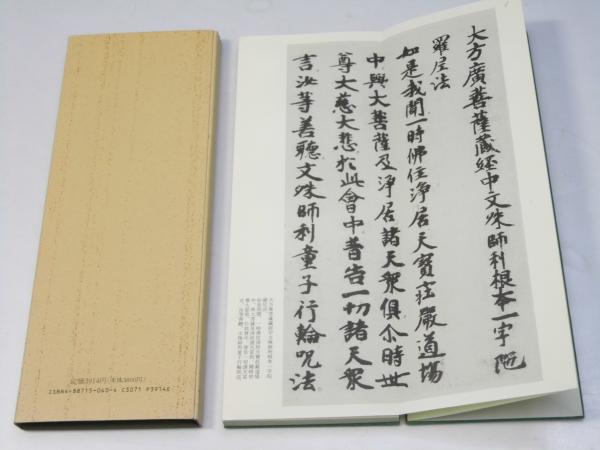 大方廣菩薩藏経中文殊師利根本一字陁
羅尼法
如是我聞一時佛住淨居天寶莊嚴道場
中與大菩薩及淨居諸天衆俱尒時世
尊大慈大悲於此會中普告一切諸天衆
言汝等善聽文殊師利童子行輪呪法
定価3914円(本体3800円)
ISBN4-88715-060-4 C3071 P3914E